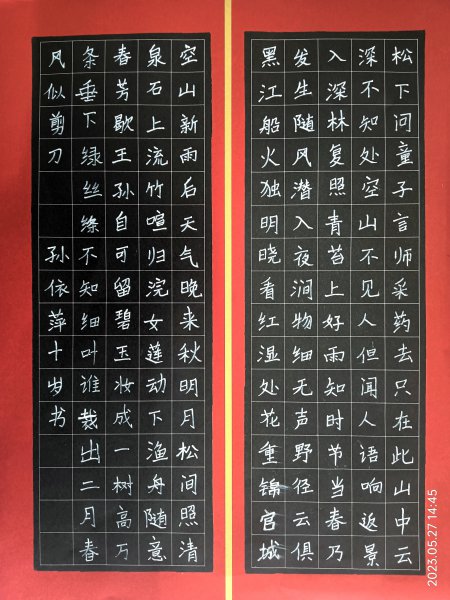 松下问童子言师采药去只在此山中云
深不知处空山不见人但闻人语响返景
入深林复照青苔上好雨知时节当春乃
发生随风潜入夜润物细无声野径云俱
黑江船火独明晓看红湿处花重锦官城
空山新雨后天气晚来秋明月松间照清
泉石上流竹喧归浣女莲动下渔舟随意
春芳歇王孙自可留碧玉妆成一树高万
条垂下绿丝绦不知细叶谁裁出二月春
风似剪刀 孙依萍十岁书
2023.05.27 14:45